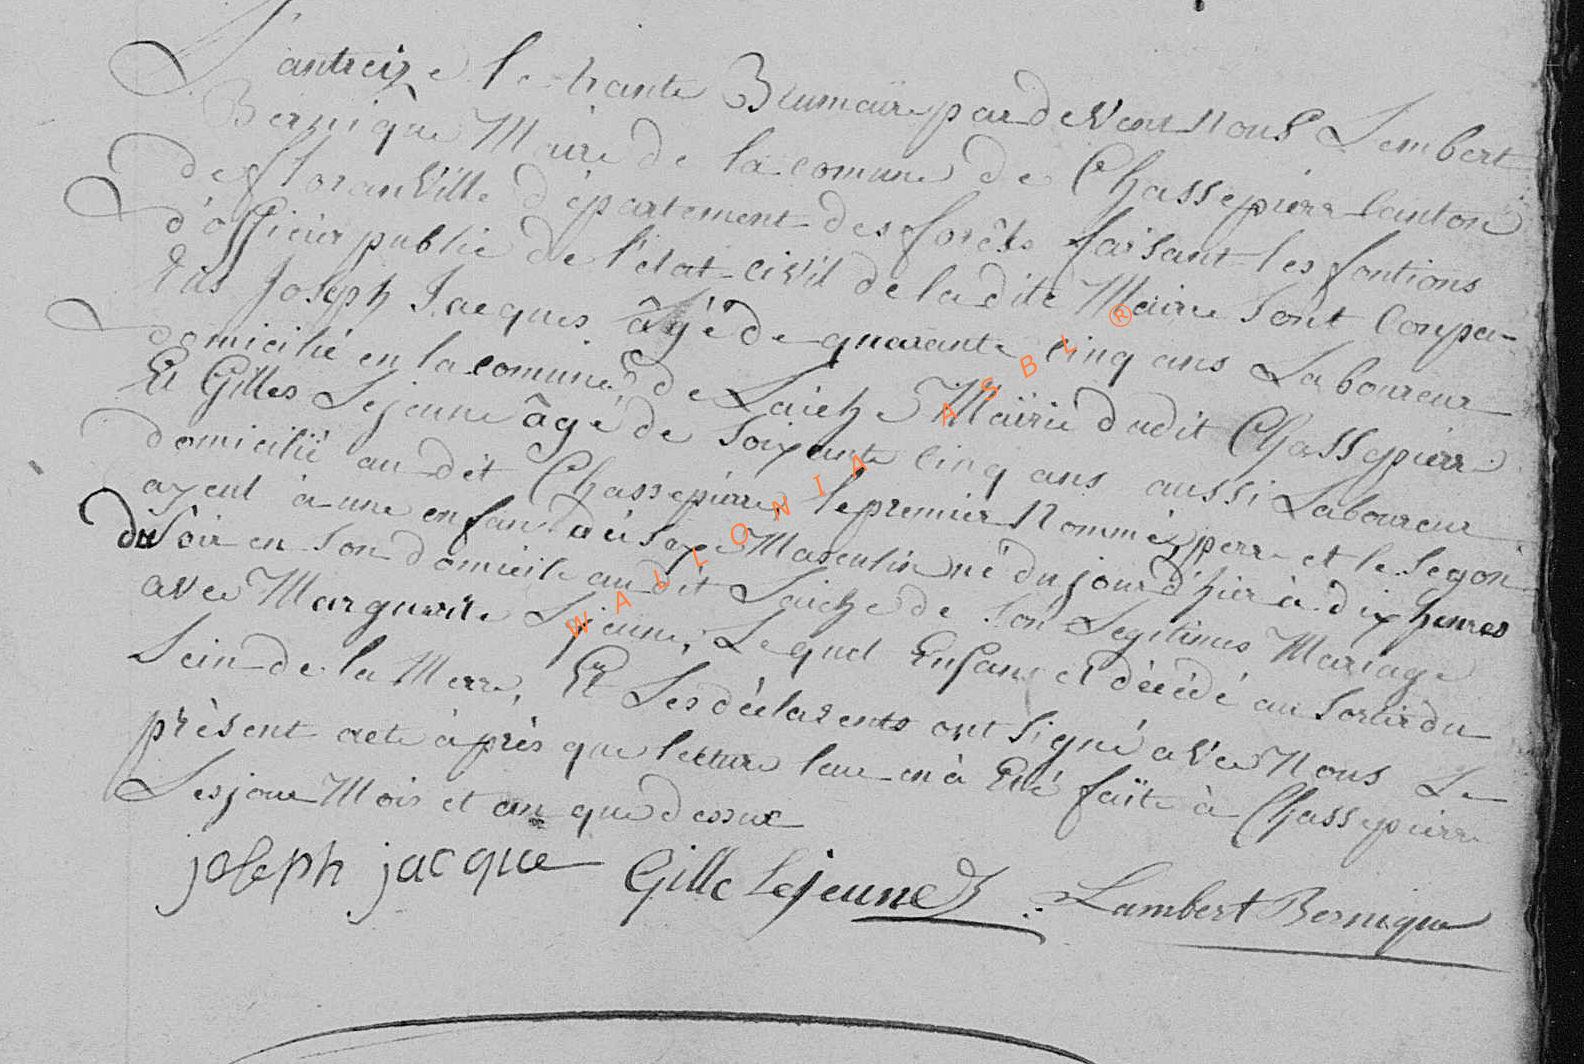 L'antreize le trante Brumaire par deVent Nous Lembert
Bernique Maire de la comune de Chassepierre Canton
de floranVille département des forêts faisant les fontions
d'officier public de l'état ciVil de la dite Mairie Sont Conpa-
rus Joseph Jacques âgé de quarante cinq ans Laboureur
domicilié en la comune de Laiche Mairie dudit Chassepierre
Et Gilles Lejeune âgé de soixante cinq ans aussi Laboureur
domicilié au dit Chassepierre, le premier Nommé, perre et le segon
ayeul à une enfan du sexe Masculin né du jour d'hier à dix heures
du Soir en Son domicile au dit Laiche de Son Legitimes Mariage
avec Marguerite Lejeune, Lequel Enfant et décédé au Sortir du
Sein de la Merre, Et Les déclarents ont Signé aVec Nous Le
présent acte àprès que lecture leur en à Eté faite à Chassepierre
Les jour Mois et an que dessus
joseph jacque Gille Lejeune Lambert Bernique
WALLONIA ASBL ®